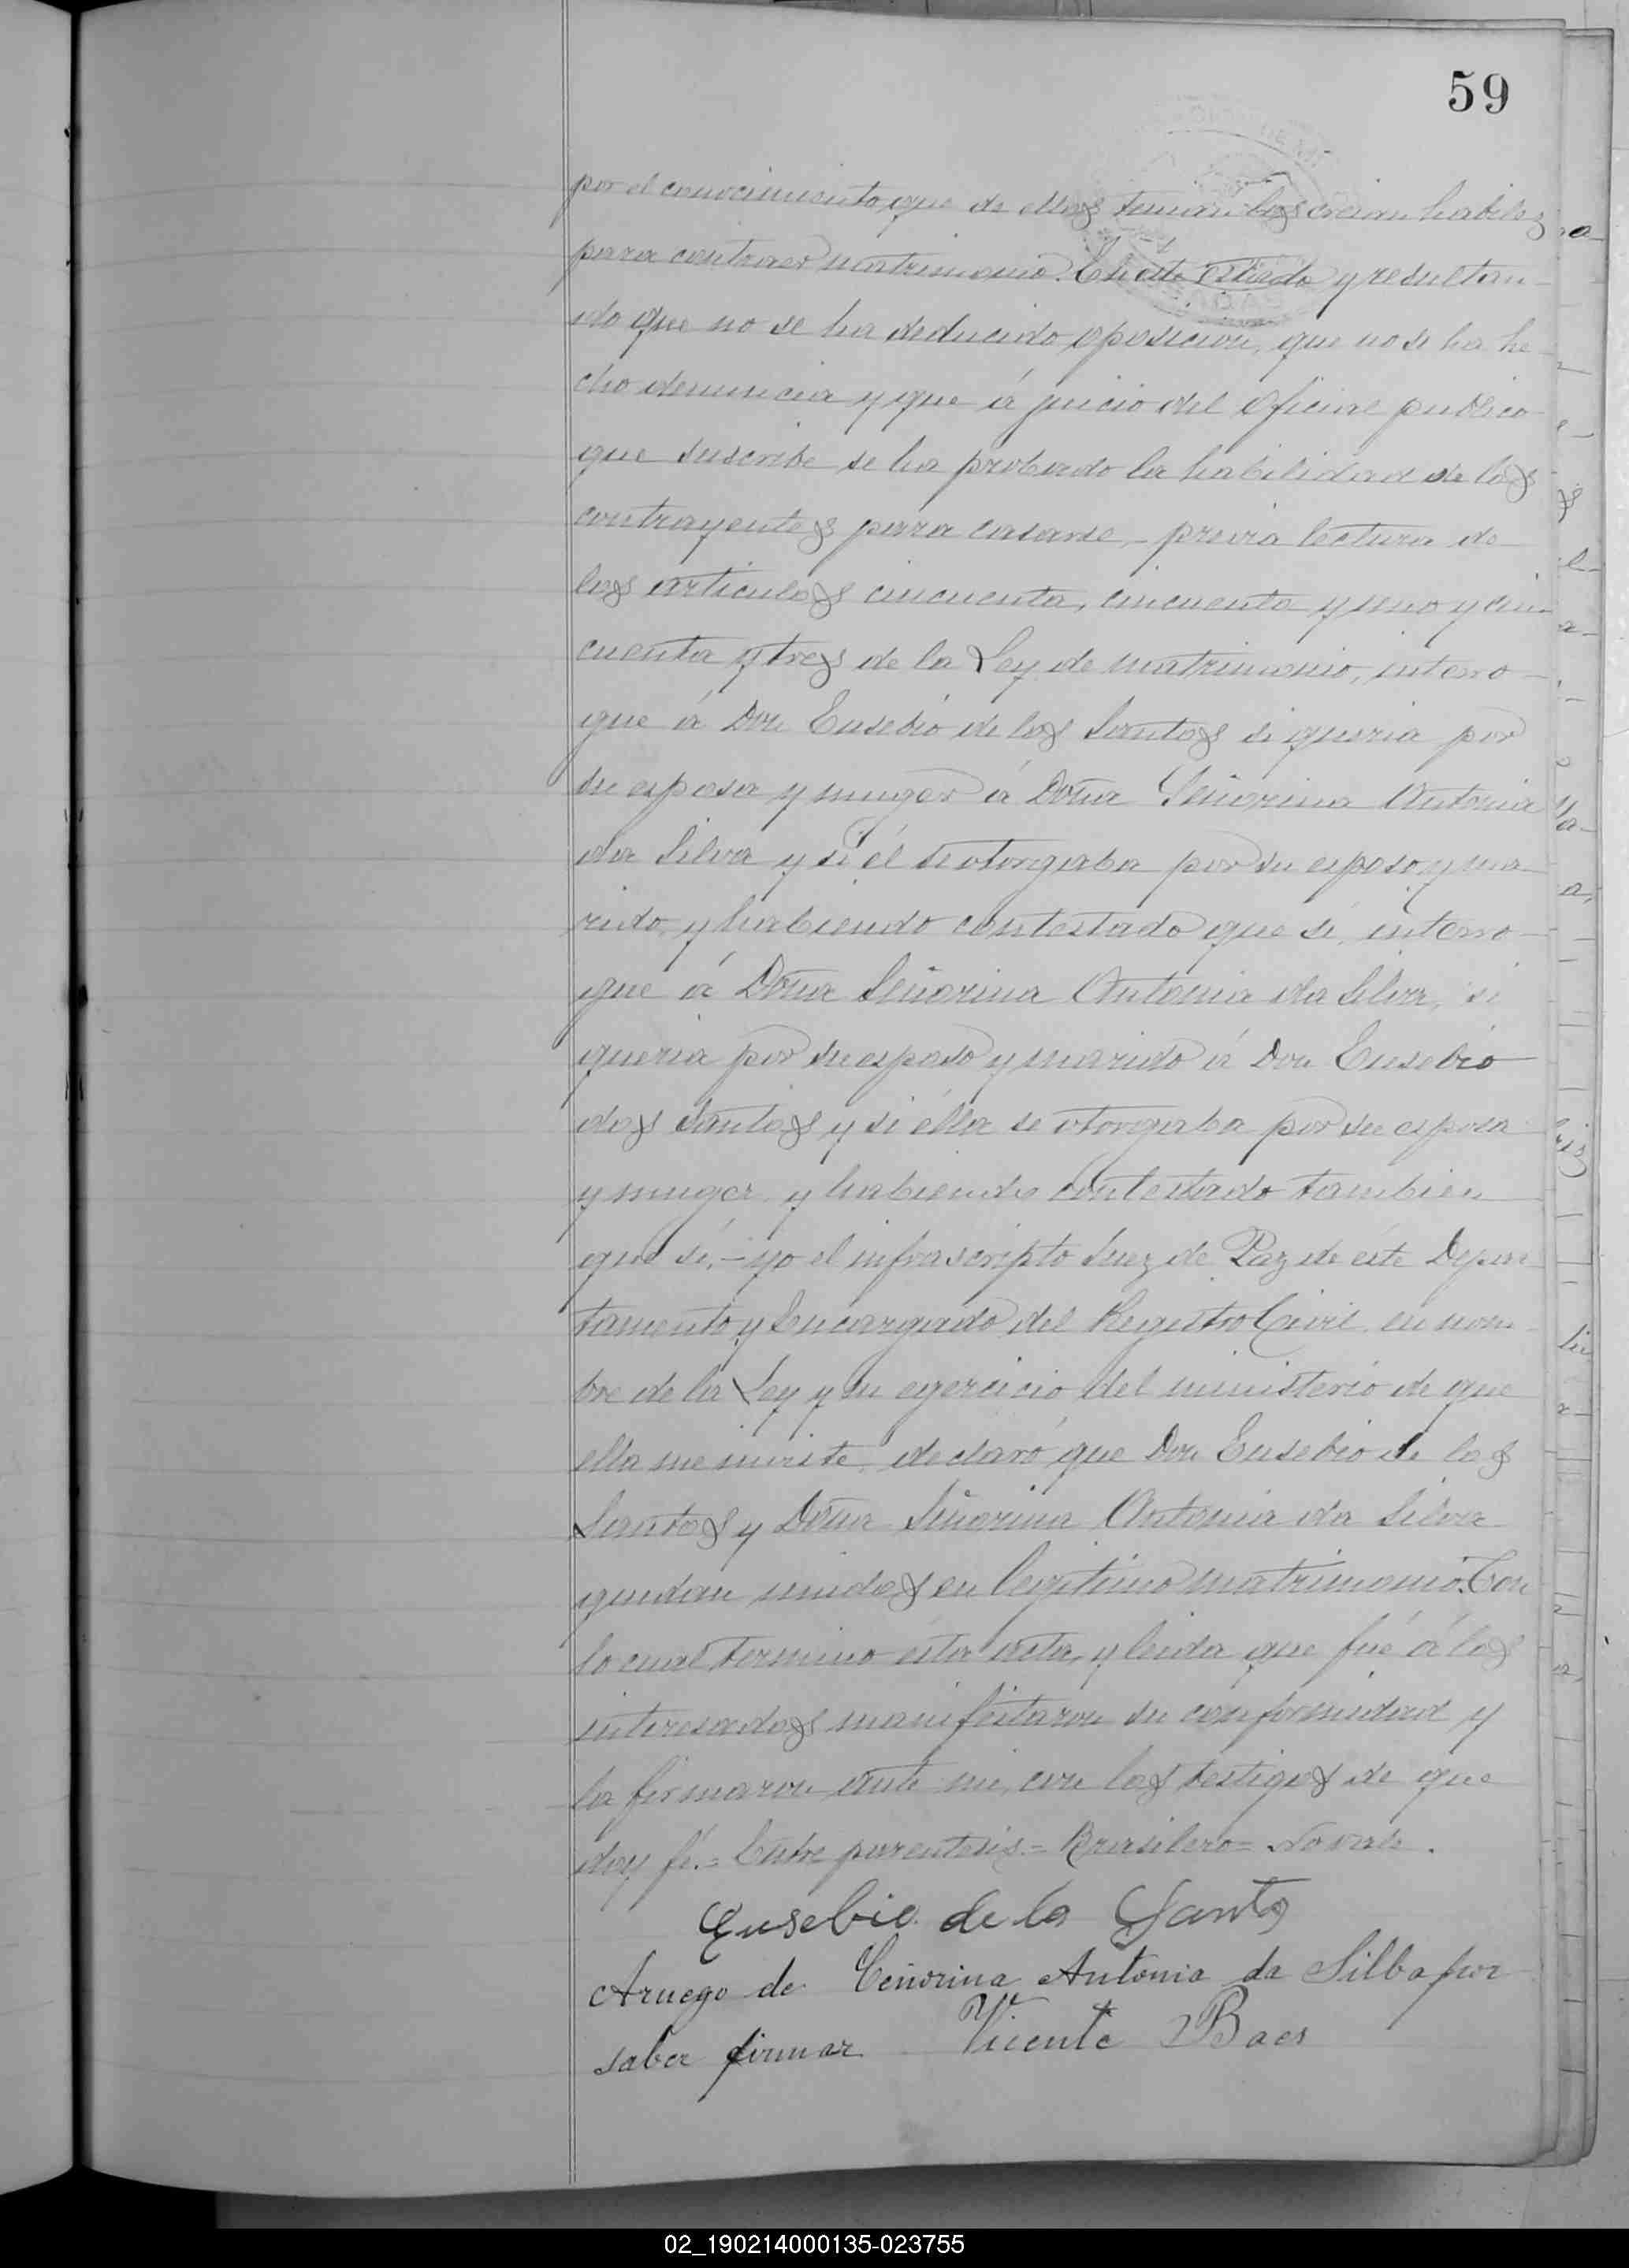 59
por el conocimiento que de ellos tenian los creian habiles
para contraer matrimonio. En este estado y resultan-
do que no se ha deducido oposicion, que no se ha he-
cho denuncia y que á juicio del Oficial publico
que suscribe se ha probado la habilidad de los
contrayentes para casarse, - previa lectura de
los articulos cincuenta, cincuenta y uno y cin-
cuenta y tres de la Ley de matrimonio, interro-
gue á Don Eusebio de los Santos si queria por
su esposa y muger á Doña Señorina Antonia
da Silva y si él se otorgaba por su esposo y ma-
rido, y habiendo contestado que sí, interro-
gue á Doña Señorina Antonia da Silva, si
queria por su esposo y marido á Don Eusebio
dos Santos y si élla se otorgaba por su esposa
y muger y habiendo contestado tambien
que sí, - yo el infrascripto Juez de Paz de éste Depar
tamento y Encargado del Registro Civil en nom-
bre de la Ley y en egercicio del ministerio de que
ella me inviste, declaró que Don Eusebio de los
Santos y Doña Señorina Antonia da Silva
quedan unidos en legitimo matrimonio. Con
lo cual termino ésta acta, y leida que fué á los
interesados manifestaron su conformidad y
la firmaron ante mi, con los testigos de que
doy fé. = Entre parentesis = Brasilero = No vale.
Eusebio de los Santos
Aruego de Ceñorina Antonia da Silba por
saber firmar Vicente Baes
02_190214000135-023755